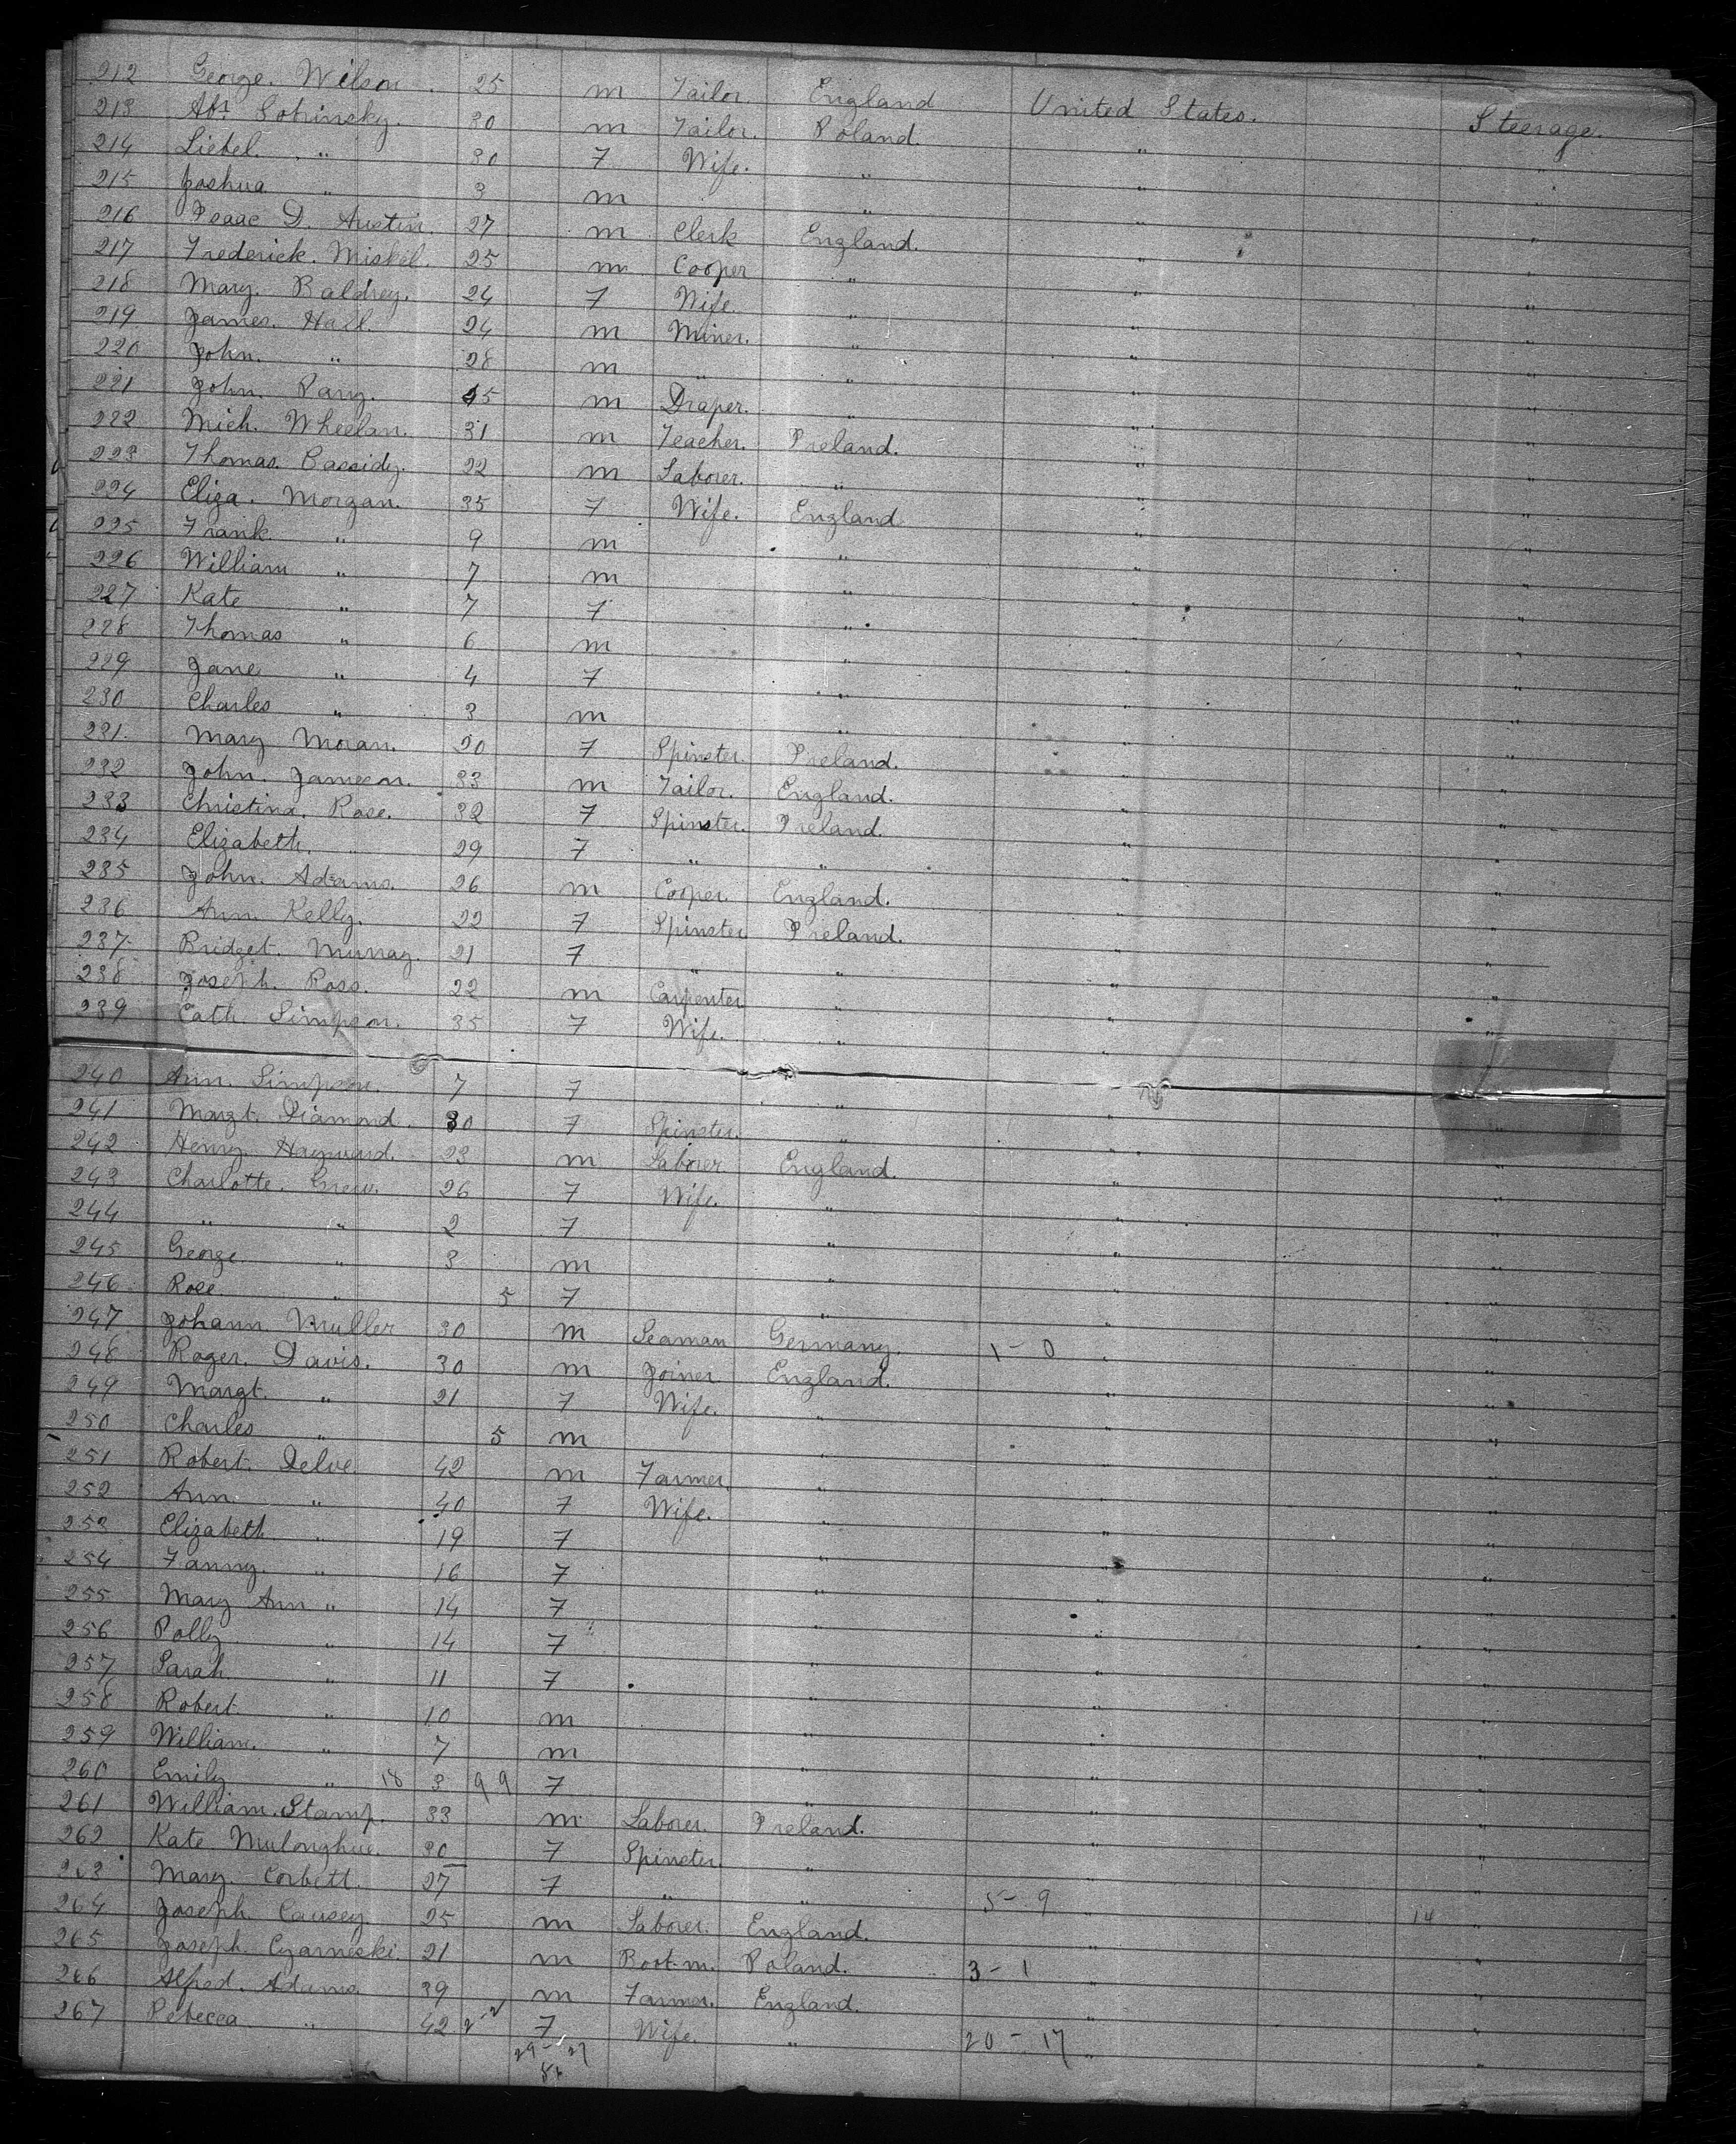 212 George. Wilson. 25 m Tailor. England United States. Steerage.
213 Abr. Sobinsky. 30 m Tailor. Poland. " "
214 Liebel. " 30 F Wife. " " "
215 Joshua " 3 m " " "
216 Isaac D. Austin. 27 m Clerk England. " "
217 Frederick. Miskel. 25 m Cooper " " "
218 Mary. Baldrey. 24 F Wife. " " "
219 James. Hall. 24 m Miner. " " "
220 John. " 28 m " " " "
221 John. Parry. 45 m Draper. " " "
222 Mich. Wheelan. 31 m Teacher. Ireland. " "
223 Thomas. Cassidy. 22 m Laborer. " " "
224 Eliza. Morgan. 35 F Wife. England. " "
225 Frank " 9 m " " "
226 William " 7 m " " "
227 Kate " 7 F " " "
228 Thomas " 6 m " " "
229 Jane " 4 F " " "
230 Charles " 3 m " " "
231 Mary Moran. 20 F Spinster. Ireland. " "
232 John. Jameson. 33 m Tailor. England. " "
233 Christina. Rose. 32 F Spinster. Ireland. " "
234 Elizabeth. " 29 F " " " "
235 John. Adams. 26 m Cooper. England. " "
236 Ann. Kelly. 22 F Spinster. Ireland. " "
237 Bridget. Murray. 21 F " " " "
238 Joseph. Ross. 22 m Carpenter " " "
239 Cath. Simpson. 35 F Wife. " " "
240 Ann. Simpson. 7 F " " "
241 Margt. Diamond. 30 F Spinster. " " "
242 Henry. Hayward. 23 m Laborer England. " "
243 Charlotte. Grew. 26 F Wife. " " "
244 " " 2 F " " "
245 George " 3 m " " "
246 Rose " 5 F " " "
247 Johann Muller 30 m Seaman Germany. 1 - 0 " "
248 Roger. Davis. 30 m Joiner England. " "
249 Margt. " 21 F Wife. " " "
250 Charles " 5 m " " "
251 Robert. Delve. 42 m Farmer. " " "
252 Ann. " 40 F Wife. " " "
253 Elizabeth " 19 F " " "
254 Fanny. " 16 F " " "
255 Mary Ann " 14 F " " "
256 Polly " 14 F " " "
257 Sarah. " 11 F " " "
258 Robert. " 10 m " " "
259 William. " 7 m " " "
260 Emily " 18 3 9 9 F " " "
261 William. Stamp. 33 m Laborer. Ireland. " "
262 Kate Mulonghue. 30 F Spinster. " " "
263 Mary. Corbett. 27 F " " 5 - 9 " 14 "
264 Joseph. Causey. 25 m Laborer. England. " "
265 Joseph. Czarnecki. 21 m Boot-m. Poland. 3 - 1 " "
266 Alfred. Adams. 39 m Farmer. England. " "
267 Rebecca " 42 2-2 F Wife. " 20 - 17 " "
29 - 27